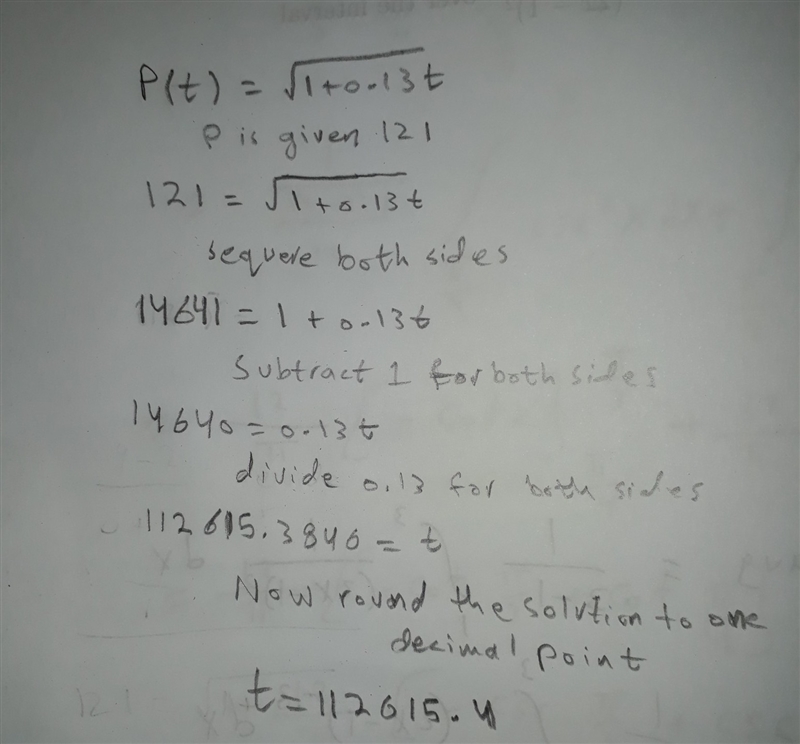 P(t) = √1+0.13t
P is given 121
121 = √1+0.13t
sequere both sides
14641 = 1 + 0.13t
Subtract 1 for both sides
14640 = 0.13t
divide 0.13 for both sides
112615.3846 = t
Now round the solution to one
decimal point
t = 112615.4